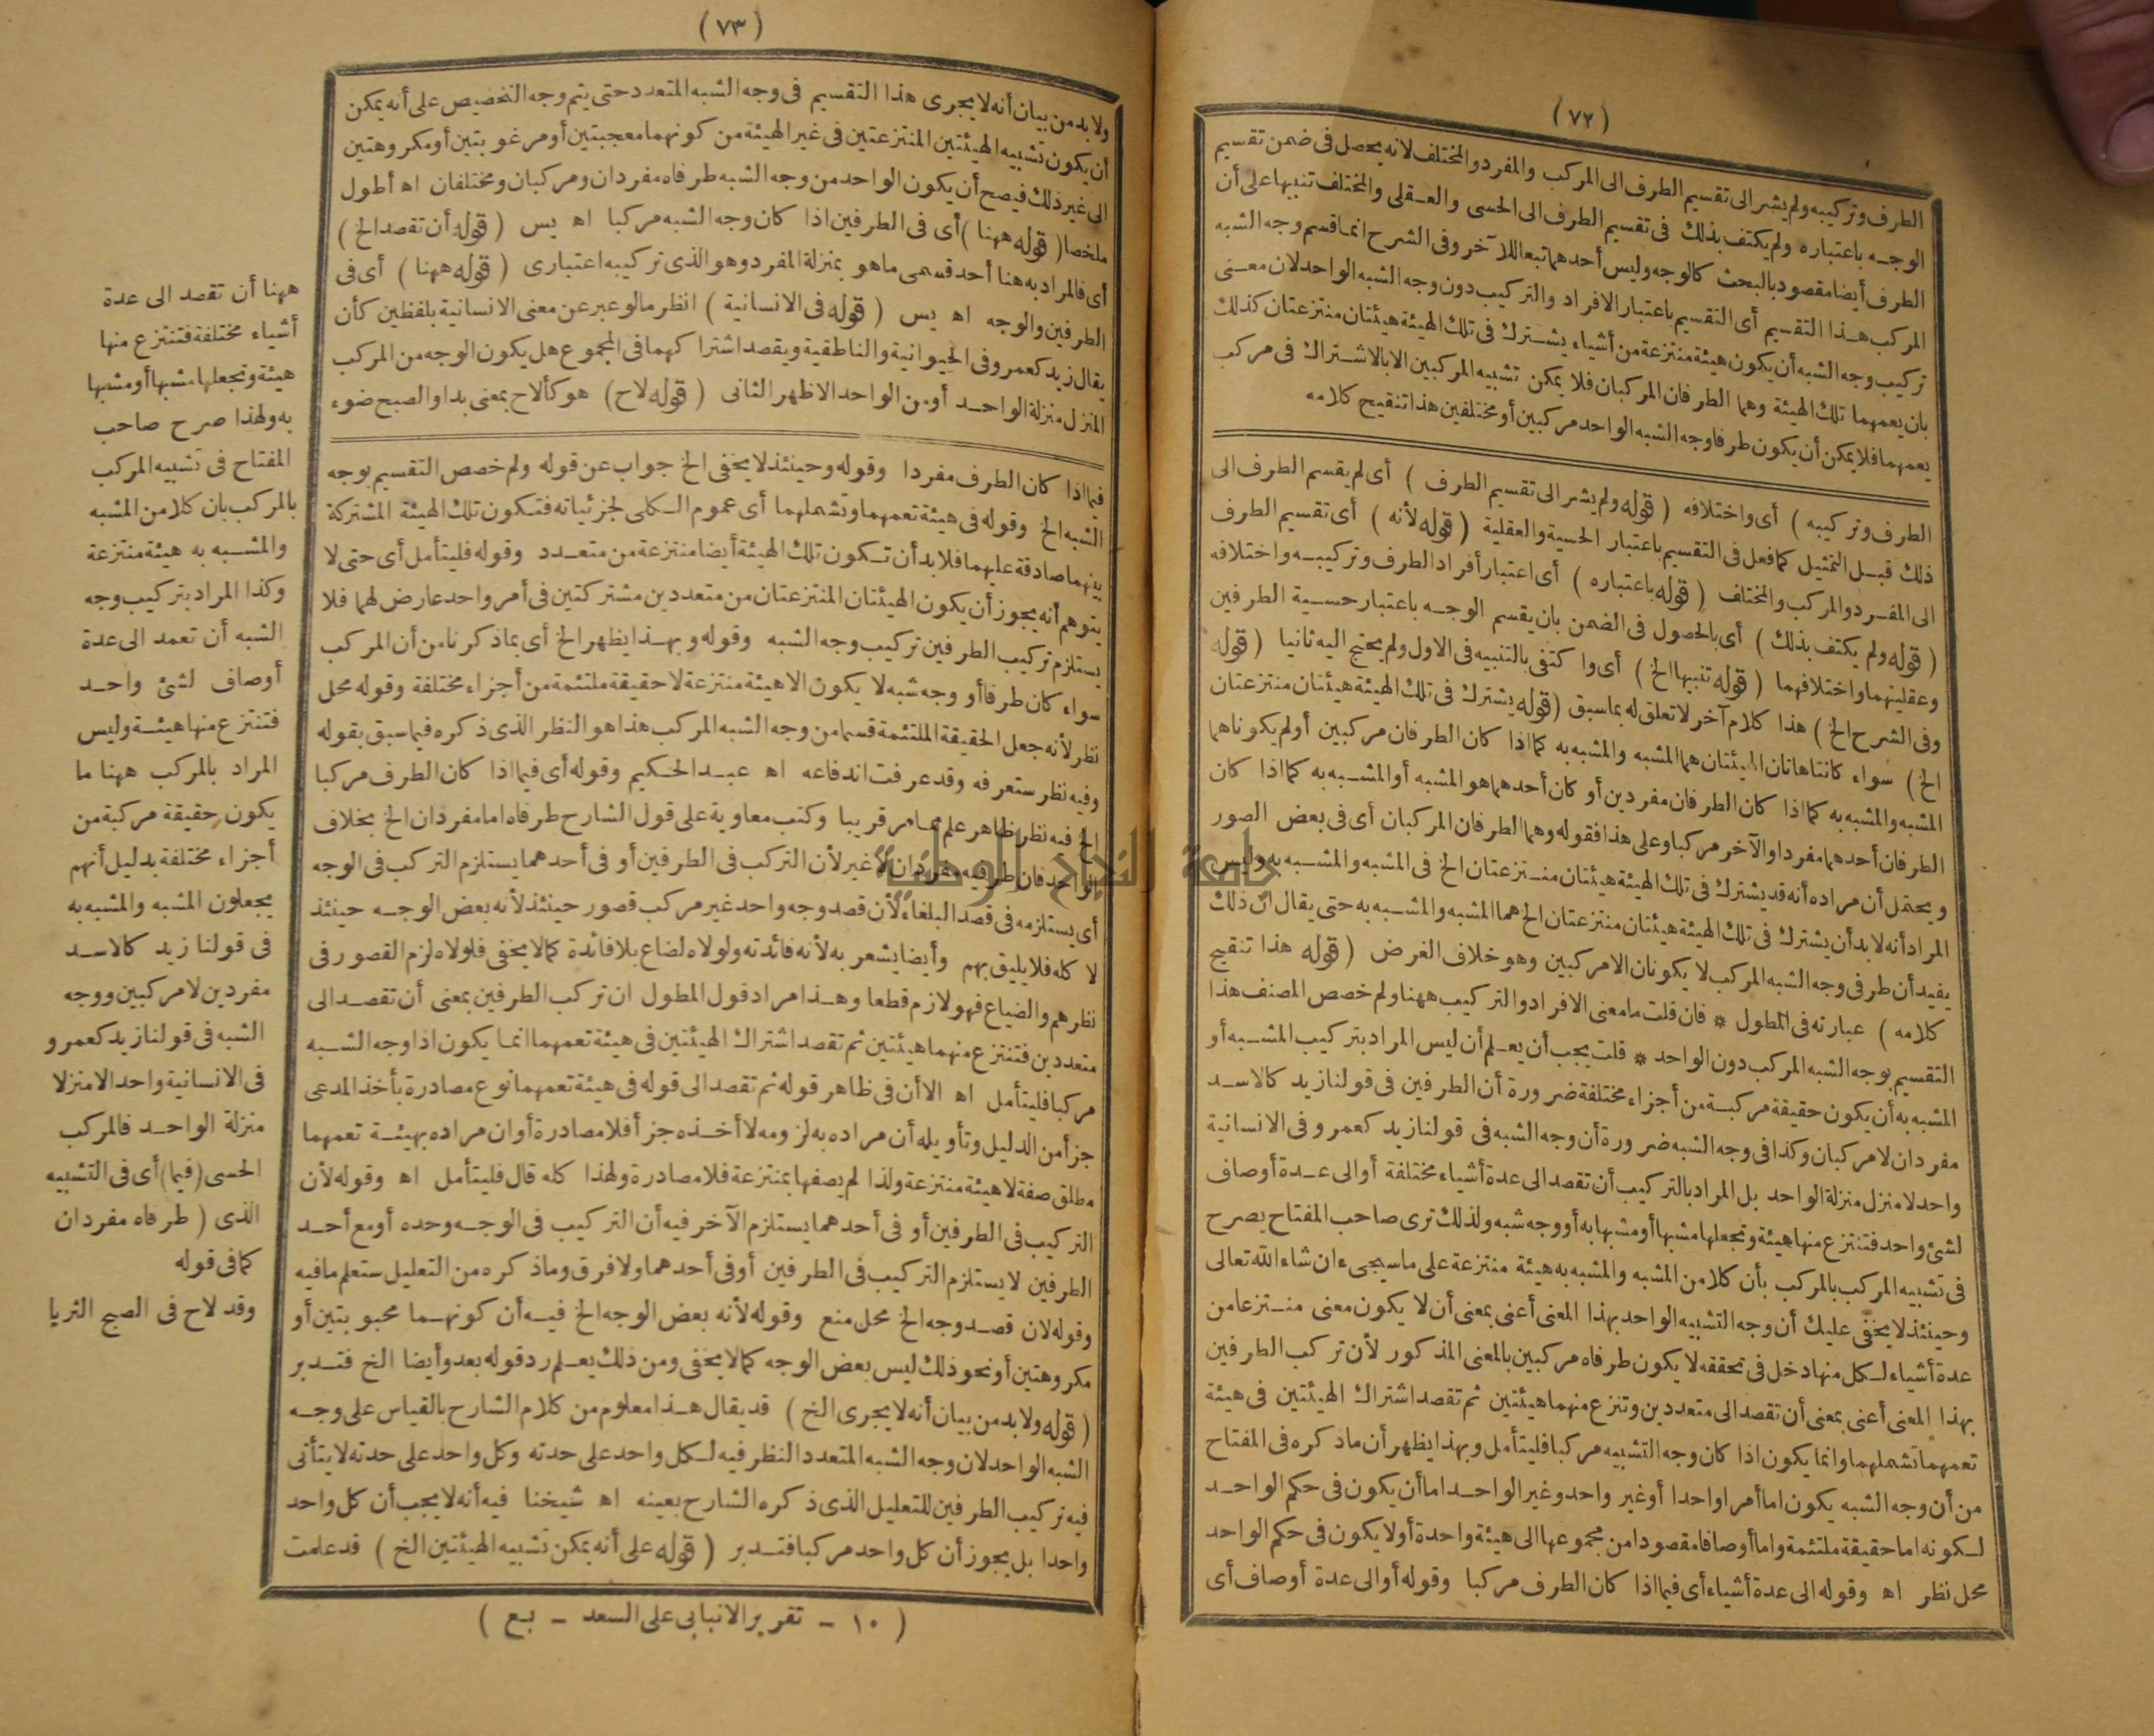 (٧٢)
الطرف وتركيبه ولم يشر الى تقسيم الطرف الى المركب والمفرد والمختلف لانه يحصل فى ضمن تقسيم
الوجه باعتباره ولم يكتف بذلك فى تقسيم الطرف الى الحسى والعقلى والمختلف تنبيها على أن
الطرف أيضا مقصود بالبحث كالوجه وليس أحدهما تبعا للآخر وفى الشرح انما قسم وجه الشبه
المركب هذا التقسيم أى التقسيم باعتبار الافراد والتركيب دون وجه الشبه الواحد لان معنى
تركيب وجه الشبه أن يكون هيئة منتزعة من أشياء يشترك فى تلك الهيئة هيئتان منتزعتان كذلك
بان يعمهما تلك الهيئة وهما الطرفان المركبان فلا يمكن تشبيه المركبين الا بالاشتراك فى مركب
يعمهما فلا يمكن أن يكون طرفا وجه الشبه الواحد مركبين أو مختلفين هذا تنقيح كلامه
الطرف وتركيبه) أى واختلافه (قوله ولم يشر الى تقسيم الطرف) أى لم يقسم الطرف الى
ذلك قبل التمثيل كما فعل فى التقسيم باعتبار الحسية والعقلية (قوله لأنه) أى تقسيم الطرف
الى المفرد والمركب والمختلف (قوله باعتباره) أى اعتبار أفراد الطرف وتركيبه واختلافه
(قوله ولم يكتف بذلك) أى بالحصول فى الضمن بان يقسم الوجه باعتبار حسية الطرفين
وعقليتهما واختلافهما (قوله تنبيها الخ) أى واكتفى بالتنبيه فى الاول ولم يحتج اليه ثانيا (قوله
وفى الشرح الخ) هذا كلام آخر لا تعلق له بما سبق (قوله يشترك فى تلك الهيئة هيئتان منتزعتان
الخ) سواء كانتا هاتان الهيئتان هما المشبه والمشبه به كما اذا كان الطرفان مركبين أو لم يكوناهما
المشبه والمشبه به كما اذا كان الطرفان مفردين أو كان أحدهما هو المشبه أو المشبه به كما اذا كان
الطرفان أحدهما مفردا والآخر مركبا وعلى هذا فقوله وهما الطرفان المركبان أى فى بعض الصور
ويحتمل أن مراده أنه قد يشترك فى تلك الهيئة هيئتان منتزعتان الخ فى المشبه والمشبه به وليس
المراد أنه لا بد أن يشترك فى تلك الهيئة هيئتان منتزعتان الخ هما المشبه والمشبه به حتى يقال ان ذلك
يفيد أن طرفى وجه الشبه المركب لا يكونان الا مركبين وهو خلاف الغرض (قوله هذا تنقيح
كلامه) عبارته فى المطول * فان قلت ما معنى الافراد والتركيب ههنا ولم خصص المصنف هذا
التقسيم بوجه الشبه المركب دون الواحد * قلت يجب أن يعلم أن ليس المراد بتركيب المشبه أو
المشبه به أن يكون حقيقة مركبة من أجزاء مختلفة ضرورة أن الطرفين فى قولنا زيد كالاسد
مفردان لا مركبان وكذا فى وجه الشبه ضرورة أن وجه الشبه فى قولنا زيد كعمرو فى الانسانية
واحد لا منزل منزلة الواحد بل المراد بالتركيب أن تقصد الى عدة أشياء مختلفة أو الى عدة أوصاف
لشئ واحد فتنتزع منها هيئة وتجعلها مشبها أو مشبها به أو وجه شبه ولذلك ترى صاحب المفتاح يصرح
فى تشبيه المركب بالمركب بأن كلا من المشبه والمشبه به هيئة منتزعة على ما سيجىء ان شاء الله تعالى
وحينئذ لا يخفى عليك أن وجه التشبيه الواحد بهذا المعنى أعنى بمعنى أن لا يكون معنى منتزعا من
عدة أشياء لكل منها دخل فى تحققه لا يكون طرفاه مركبين بالمعنى المذكور لأن تركب الطرفين
بهذا المعنى أعنى بمعنى أن تقصد الى متعددين وتنزع منهما هيئتين ثم تقصد اشتراك الهيئتين فى هيئة
تعمهما تشملهما وانما يكون اذا كان وجه التشبيه مركبا فليتأمل وبهذا يظهر أن ما ذكره فى المفتاح
من أن وجه الشبه يكون اما أمرا واحدا أو غير واحد وغير الواحد اما أن يكون فى حكم الواحد
لكونه اما حقيقة ملتئمة واما أوصافا مقصودا من مجموعها الى هيئة واحدة أو لا يكون فى حكم الواحد
محل نظر اه وقوله الى عدة أشياء أى فيما اذا كان الطرف مركبا وقوله أو الى عدة أوصاف أى
(٧٣)
ولا بد من بيان أنه لا يجرى هذا التقسيم فى وجه الشبه المتعدد حتى يتم وجه التخصيص على أنه يمكن
أن يكون تشبيه الهيئتين المنتزعتين فى غير الهيئة من كونهما معجبتين أو مرغوبتين أو مكروهتين
الى غير ذلك فيصح أن يكون الواحد من وجه الشبه طرفاه مفردان ومركبان ومختلفان اه أطول
ملخصا (قوله ههنا) أى فى الطرفين اذا كان وجه الشبه مركبا اه يس (قوله أن تقصد الخ)
أى فالمراد به هنا أحد قسمى ما هو بمنزلة المفرد وهو الذى تركيبه اعتبارى (قوله ههنا) أى فى
الطرفين والوجه اه يس (قوله فى الانسانية) انظر ما لو عبر عن معنى الانسانية بلفظين كأن
يقال زيد كعمرو فى الحيوانية والناطقية ويقصد اشتراكهما فى المجموع هل يكون الوجه من المركب
المنزل منزلة الواحد أو من الواحد الاظهر الثانى (قوله لاح) هو كألاح بمعنى بدا والصبح ضوء
فيما اذا كان الطرف مفردا وقوله وحينئذ لا يخفى الخ جواب عن قوله ولم خصص التقسيم بوجه
الشبه الخ وقوله فى هيئة تعمهما وتشملهما أى عموم الكلى لجزئياته فتكون تلك الهيئة المشتركة
بينهما صادقة عليهما فلا بد أن تكون تلك الهيئة أيضا منتزعة من متعدد وقوله فليتأمل أى حتى لا
يتوهم أنه يجوز أن يكون الهيئتان المنتزعتان من متعددين مشتركتين فى أمر واحد عارض لهما فلا
يستلزم تركيب الطرفين تركيب وجه الشبه وقوله وبهذا يظهر الخ أى بما ذكرنا من أن المركب
سواء كان طرفا أو وجه شبه لا يكون الا هيئة منتزعة لا حقيقة ملتئمة من أجزاء مختلفة وقوله محل
نظر لأنه جعل الحقيقة الملتئمة قسما من وجه الشبه المركب هذا هو النظر الذى ذكره فيما سبق بقوله
وفيه نظر ستعرفه وقد عرفت اندفاعه اه عبد الحكيم وقوله أى فيما اذا كان الطرف مركبا
الخ فيه نظر ظاهر علم مما مر قريبا وكتب معاوية على قول الشارح طرفاه اما مفردان الخ بخلاف
الواحد فان طرفيه مفردان لا غير لأن التركب فى الطرفين أو فى أحدهما يستلزم التركب فى الوجه
أى يستلزمه فى قصد البلغاء لأن قصد وجه واحد غير مركب قصور حينئذ لأنه بعض الوجه حينئذ
لا كله فلا يليق بهم وأيضا يشعر به لأنه فائدته ولولاه لضاع بلا فائدة كما لا يخفى فلولاه لزم القصور فى
نظرهم والضياع فهو لازم قطعا وهذا مراد قول المطول ان تركب الطرفين بمعنى أن تقصد الى
متعددين فتنتزع منهما هيئتين ثم تقصد اشتراك الهيئتين فى هيئة تعمهما انما يكون اذا وجه الشبه
مركبا فليتأمل اه الا أن فى ظاهر قوله ثم تقصد الى قوله فى هيئة تعمهما نوع مصادرة بأخذ المدعى
جزأ من الدليل وتأويله أن مراده به لزومه لا أخذه جزأ فلا مصادرة أو ان مراده بهيئة تعمهما
مطلق صفة لا هيئة منتزعة ولذا لم يصفها بمنتزعة فلا مصادرة ولهذا كله قال فليتأمل اه وقوله لأن
التركيب فى الطرفين أو فى أحدهما يستلزم الآخر فيه أن التركيب فى الوجه وحده أو مع أحد
الطرفين لا يستلزم التركيب فى الطرفين أو فى أحدهما ولا فرق وما ذكره من التعليل ستعلم ما فيه
وقوله لان قصد وجه الخ محل منع وقوله لأنه بعض الوجه الخ فيه أن كونهما محبوبتين أو
مكروهتين أو نحو ذلك ليس بعض الوجه كما لا يخفى ومن ذلك يعلم رد قوله بعد وأيضا الخ فتدبر
(قوله ولا بد من بيان أنه لا يجرى الخ) قد يقال هذا معلوم من كلام الشارح بالقياس على وجه
الشبه الواحد لان وجه الشبه المتعدد النظر فيه لكل واحد على حدته وكل واحد على حدته لا يتأتى
فيه تركيب الطرفين للتعليل الذى ذكره الشارح بعينه اه شيخنا فيه أنه لا يجب أن كل واحد
واحدا بل يجوز أن كل واحد مركبا فتدبر (قوله على أنه يمكن تشبيه الهيئتين الخ) قد علمت
(١٠ - تقرير الانبابى على السعد - بع)
ههنا أن تقصد الى عدة
أشياء مختلفة فتنتزع منها
هيئة وتجعلها مشبها أو مشبها
به ولهذا صرح صاحب
المفتاح فى تشبيه المركب
بالمركب بان كلا من المشبه
والمشبه به هيئة منتزعة
وكذا المراد بتركيب وجه
الشبه أن تعمد الى عدة
أوصاف لشئ واحد
فتنتزع منها هيئة وليس
المراد بالمركب ههنا ما
يكون حقيقة مركبة من
أجزاء مختلفة بدليل أنهم
يجعلون المشبه والمشبه به
فى قولنا زيد كالاسد
مفردين لا مركبين ووجه
الشبه فى قولنا زيد كعمرو
فى الانسانية واحد الا منزلا
منزلة الواحد فالمركب
الحسى (فيما) أى فى التشبيه
الذى (طرفاه مفردان
كما فى قوله
وقد لاح فى الصبح الثريا
جامعة النجاح الوطنية